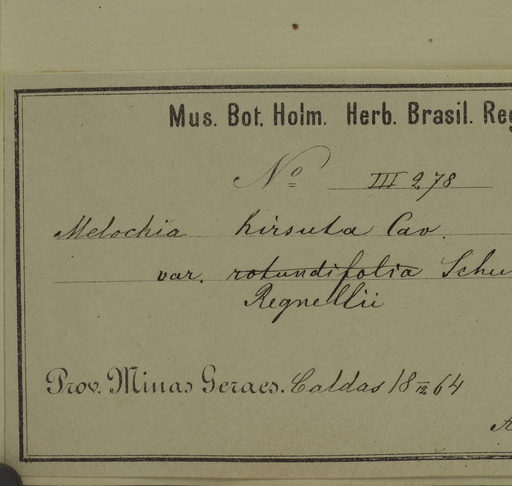 Mus. Bot. Holm. Herb. Brasil. Reg
No III 278
Melochia hirsuta Cav.
var. rotundifolia Schu
Regnellii
Prov. Minas Geraes. Caldas 18 12/64
A